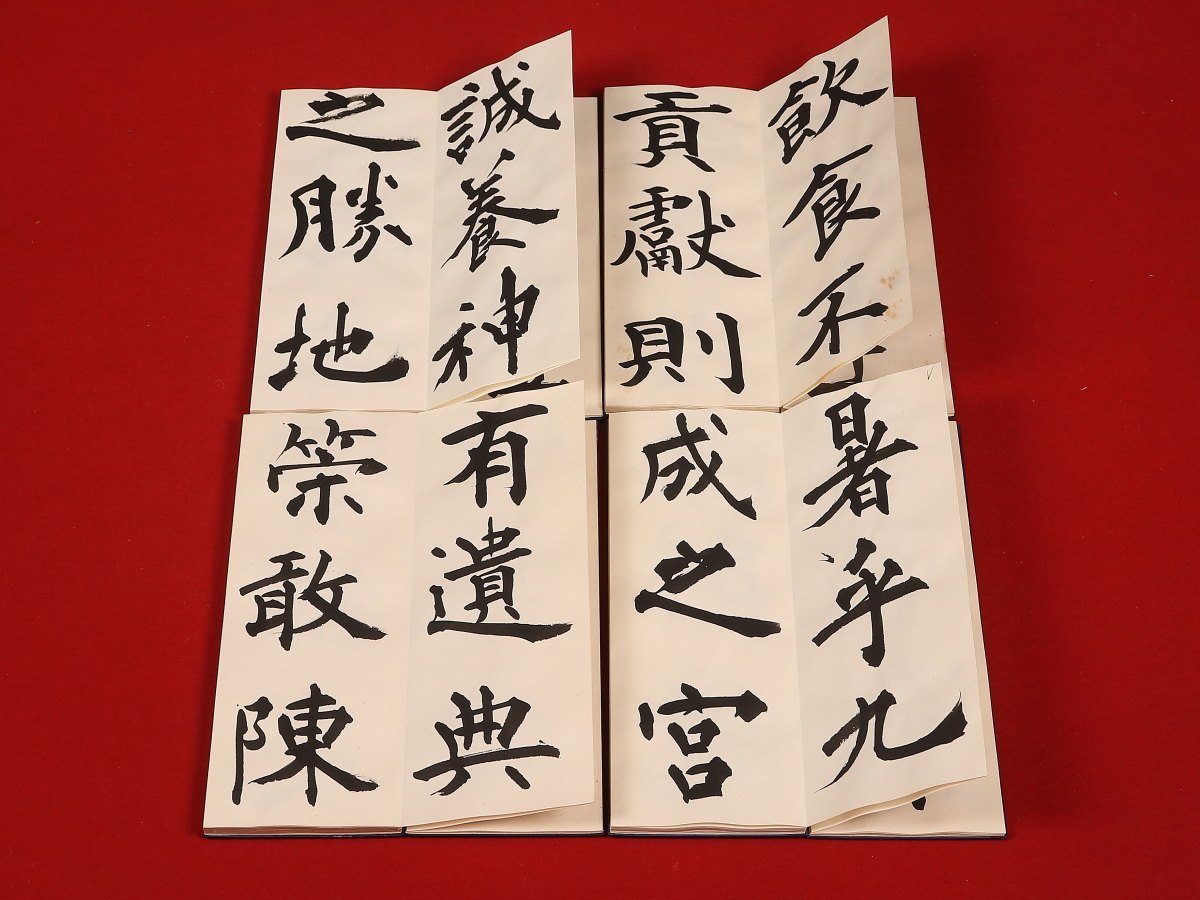 飲食不
貢獻則
誠養神
之勝地
暑乎九
成之宮
有遺典
策敢陳